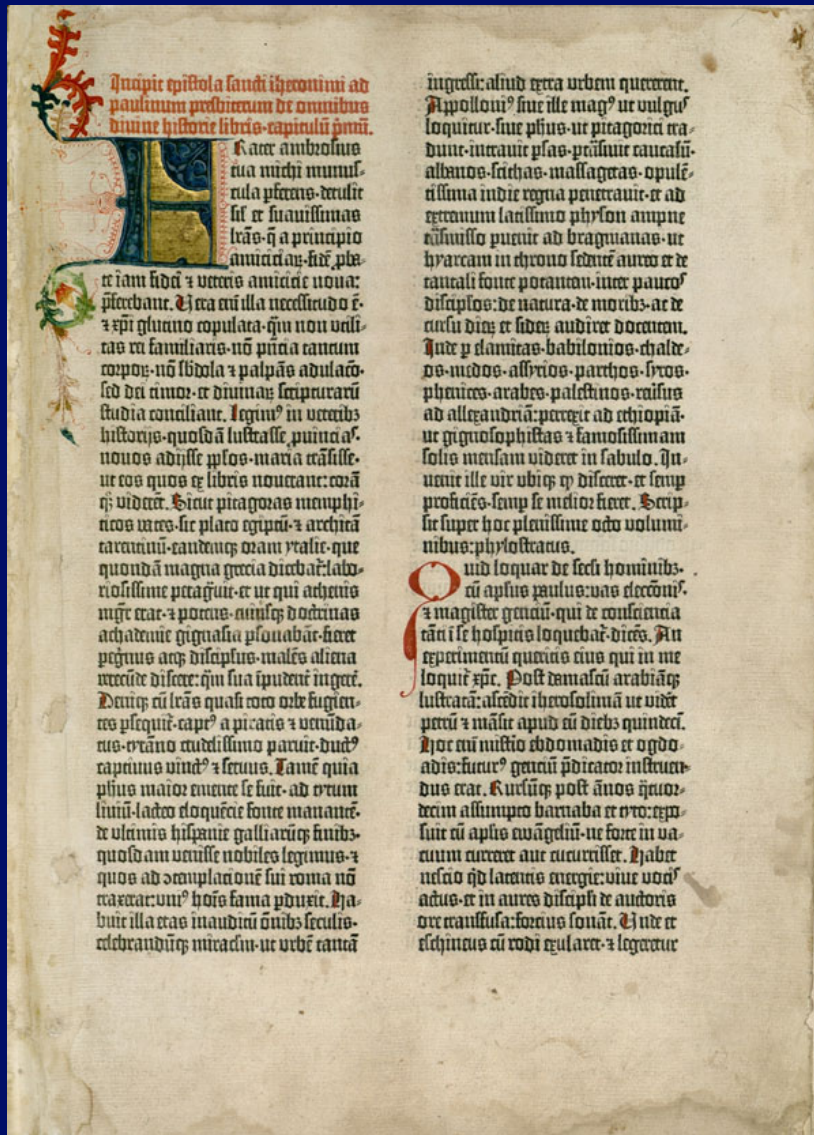 Incipit epistola sancti iheronimi ad
paulinum presbiterum de omnibus
divine historie libris·capitulū p̄mū.
Frater ambrosius
tua michi munus-
cula pferens·detulit
sil' et suavissimas
lrās·q̄ a principio
amiciciaꝝ·fidē pba-
te iam fidei ⁊ veteris amicicie nova:
pferebant. Vera eni illa necessitudo ē·
⁊ xpi glutino copulata·q̄m non utili-
tas rei familiaris·nō pn̄cia tantum
corpoꝝ·nō sbdola ⁊ palpās adulacō·
sed dei timor·et divinaꝝ scripturarū
studia conciliant. Legim⁹ in veteribꝫ
historijs·quosdā lustrasse puincias·
novos adijsse pplos·maria trāsisse·
ut eos quos ex libris noverant: corā
qꝫ viderēt. Sicut pitagoras memphi-
ticos vates·sic plato egiptū·⁊ architā
tarentinū·eandemqꝫ oram ytalie·que
quondā magna grecia dicebat̄: labo-
riosissime peragravit·et ut qui athenis
mgr̄ erat·⁊ potens·cuiusqꝫ doctrinas
achademie gignasia psonabāt·fieret
peg̓nus atqꝫ discipulus·malēs aliena
verecūde discere: q̄m sua īpudent̓ ingere.
Deniqꝫ cū lrās quasi toto orbe fugien-
tes psequit̄·capt⁹ a piratis ⁊ venūda-
tus·tyrāno crudelissimo paruit·duct⁹
captivus vinct⁹ ⁊ servus. Tamē quia
phus maior emente se fuit·ad tytum
livium·lacteo eloquēcie fonte manantē·
de ultimis hispanie galliarūqꝫ finibꝫ·
quosdam venisse nobiles legimus·⁊
quos ad ꝯtemplacionē sui roma nō
traxerat: uni⁹ hoīs fama pduxit. Ha-
buit illa etas inauditū ōnibꝫ seculis·
celebrandūqꝫ miraclm·ut urbē tantā
ingressi: aliud extra urbem quererent.
Appolloni⁹ sive ille mag⁹ ut vulgus
loquitur·sive phus·ut pitagorici tra-
dunt·intravit psas·ptrāsivit caucasū·
albanos·scithas·massagetas·opulē-
tissima indie regna penetravit·et ad
extremum latissimo physon ampne
trāsmisso pvenit ad bragmanas·ut
hyarcam in throno sedentē aureo et de
tantali fonte potantem·inter paucos
discipulos: de natura·de moribꝫ·ac de
cursu dieꝝ et sideꝝ audiret docentem.
Inde p elamitas·babilonios·chalde-
os·medos·assyrios·parthos·syros·
phenices·arabes·palestinos·reversus
ad allexandriā: perrexit ad ethiopiā·
ut gignosophistas ⁊ famosissimam
solis mensam videret in sabulo. In-
venit ille vir ubiqꝫ qꝫ disceret·et semp
proficiēs·semp se melior fieret. Scrip-
sit super hoc plenissime octo volumi-
nibus: phylostratus.
Quid loquar de secli hominibꝫ·
cū aplus paulus: vas eleccōnis·
⁊ magister genciū·qui de consciencia
tāti ī se hospitis loquebat̄·dicēs. An
experimentū queritis eius qui in me
loquit̄ xpc̄. Post damascū arabiāqꝫ
lustratā: ascēdit iherosolimā ut vidēt
petrū ⁊ māsit apud eū diebꝫ quindeci.
Hoc eni misterio ebdomadis et ogdo-
adis: futur⁹ genciū pdicator instruen-
dus erat. Rursūqꝫ post ānos q̄tuor-
decim assumpto barnaba et tyto: expo-
suit cū aplis ewāgeliū·ne forte in va-
cuum curreret aut cucurrisset. Habet
nescio q̄d latentis energie: vive vocis
actus·et in aures discipuli de auctoris
ore transfusa: forcius sonāt. Unde et
eschineus cū rodi exularet·⁊ legeretur